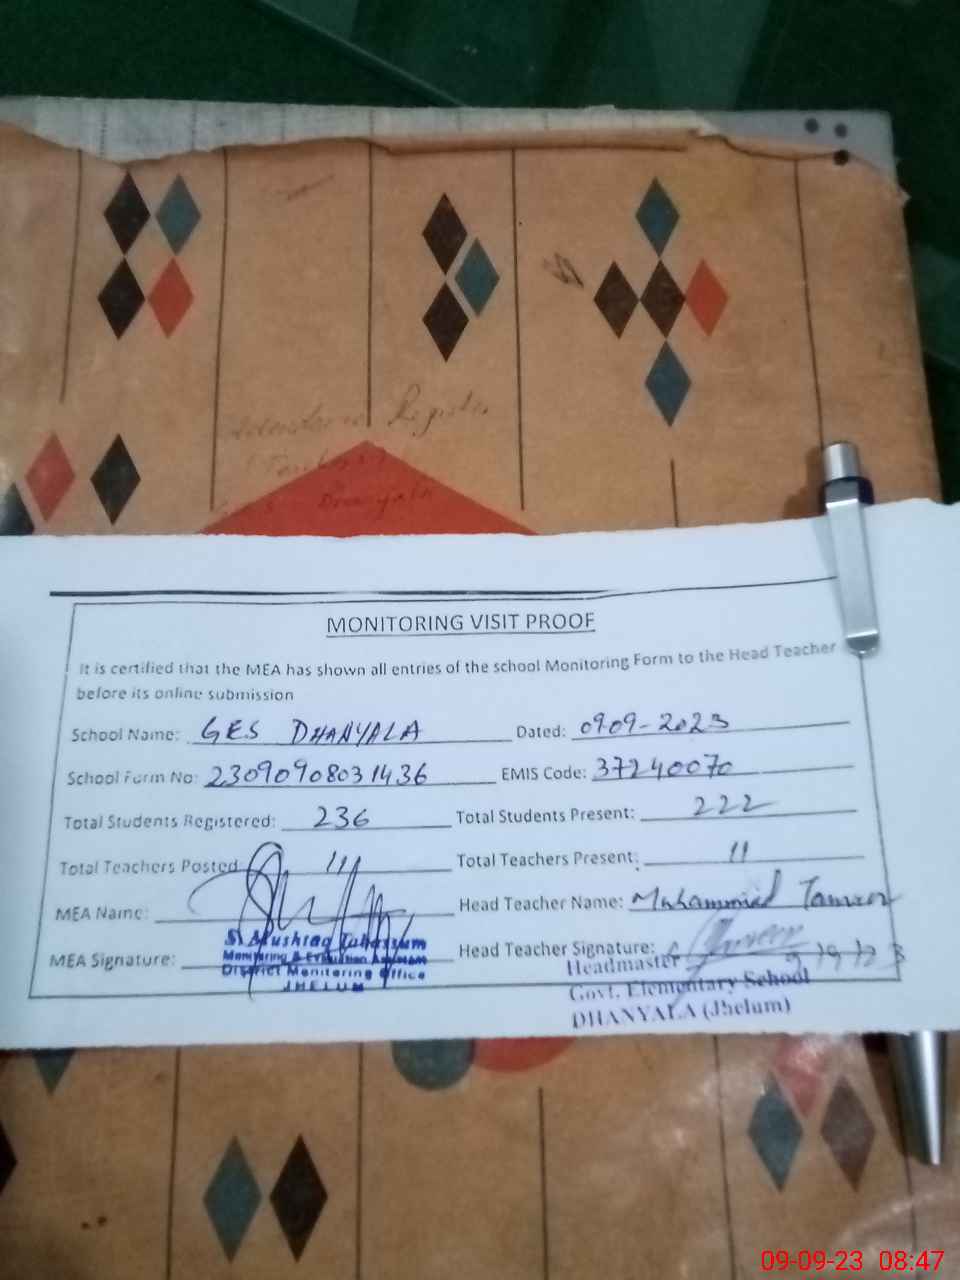 Register
MONITORING VISIT PROOF
It is certified that the MEA has shown all entries of the school Monitoring Form to the Head Teacher
before its online submission
School Name: GES DHANYALA Dated: 0909-2023
School Form No: 23090908031436 EMIS Code: 37240070
Total Students Registered: 236 Total Students Present: 222
Total Teachers Posted: 11 Total Teachers Present: 11
MEA Name: Head Teacher Name: Muhammad Tanveer
MEA Signature: Head Teacher Signature: 9/9/23
S. Mushtaq Tabassum
Monitoring & Evaluation Assistant
District Monitoring Office
JHELUM
Headmaster
Govt. Elementary School
DHANYALA (Jhelum)
09-09-23 08:47